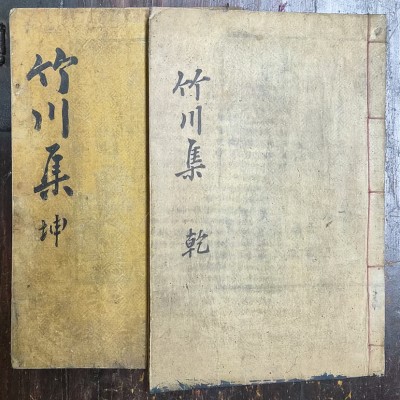 竹川集 乾
竹川集 坤